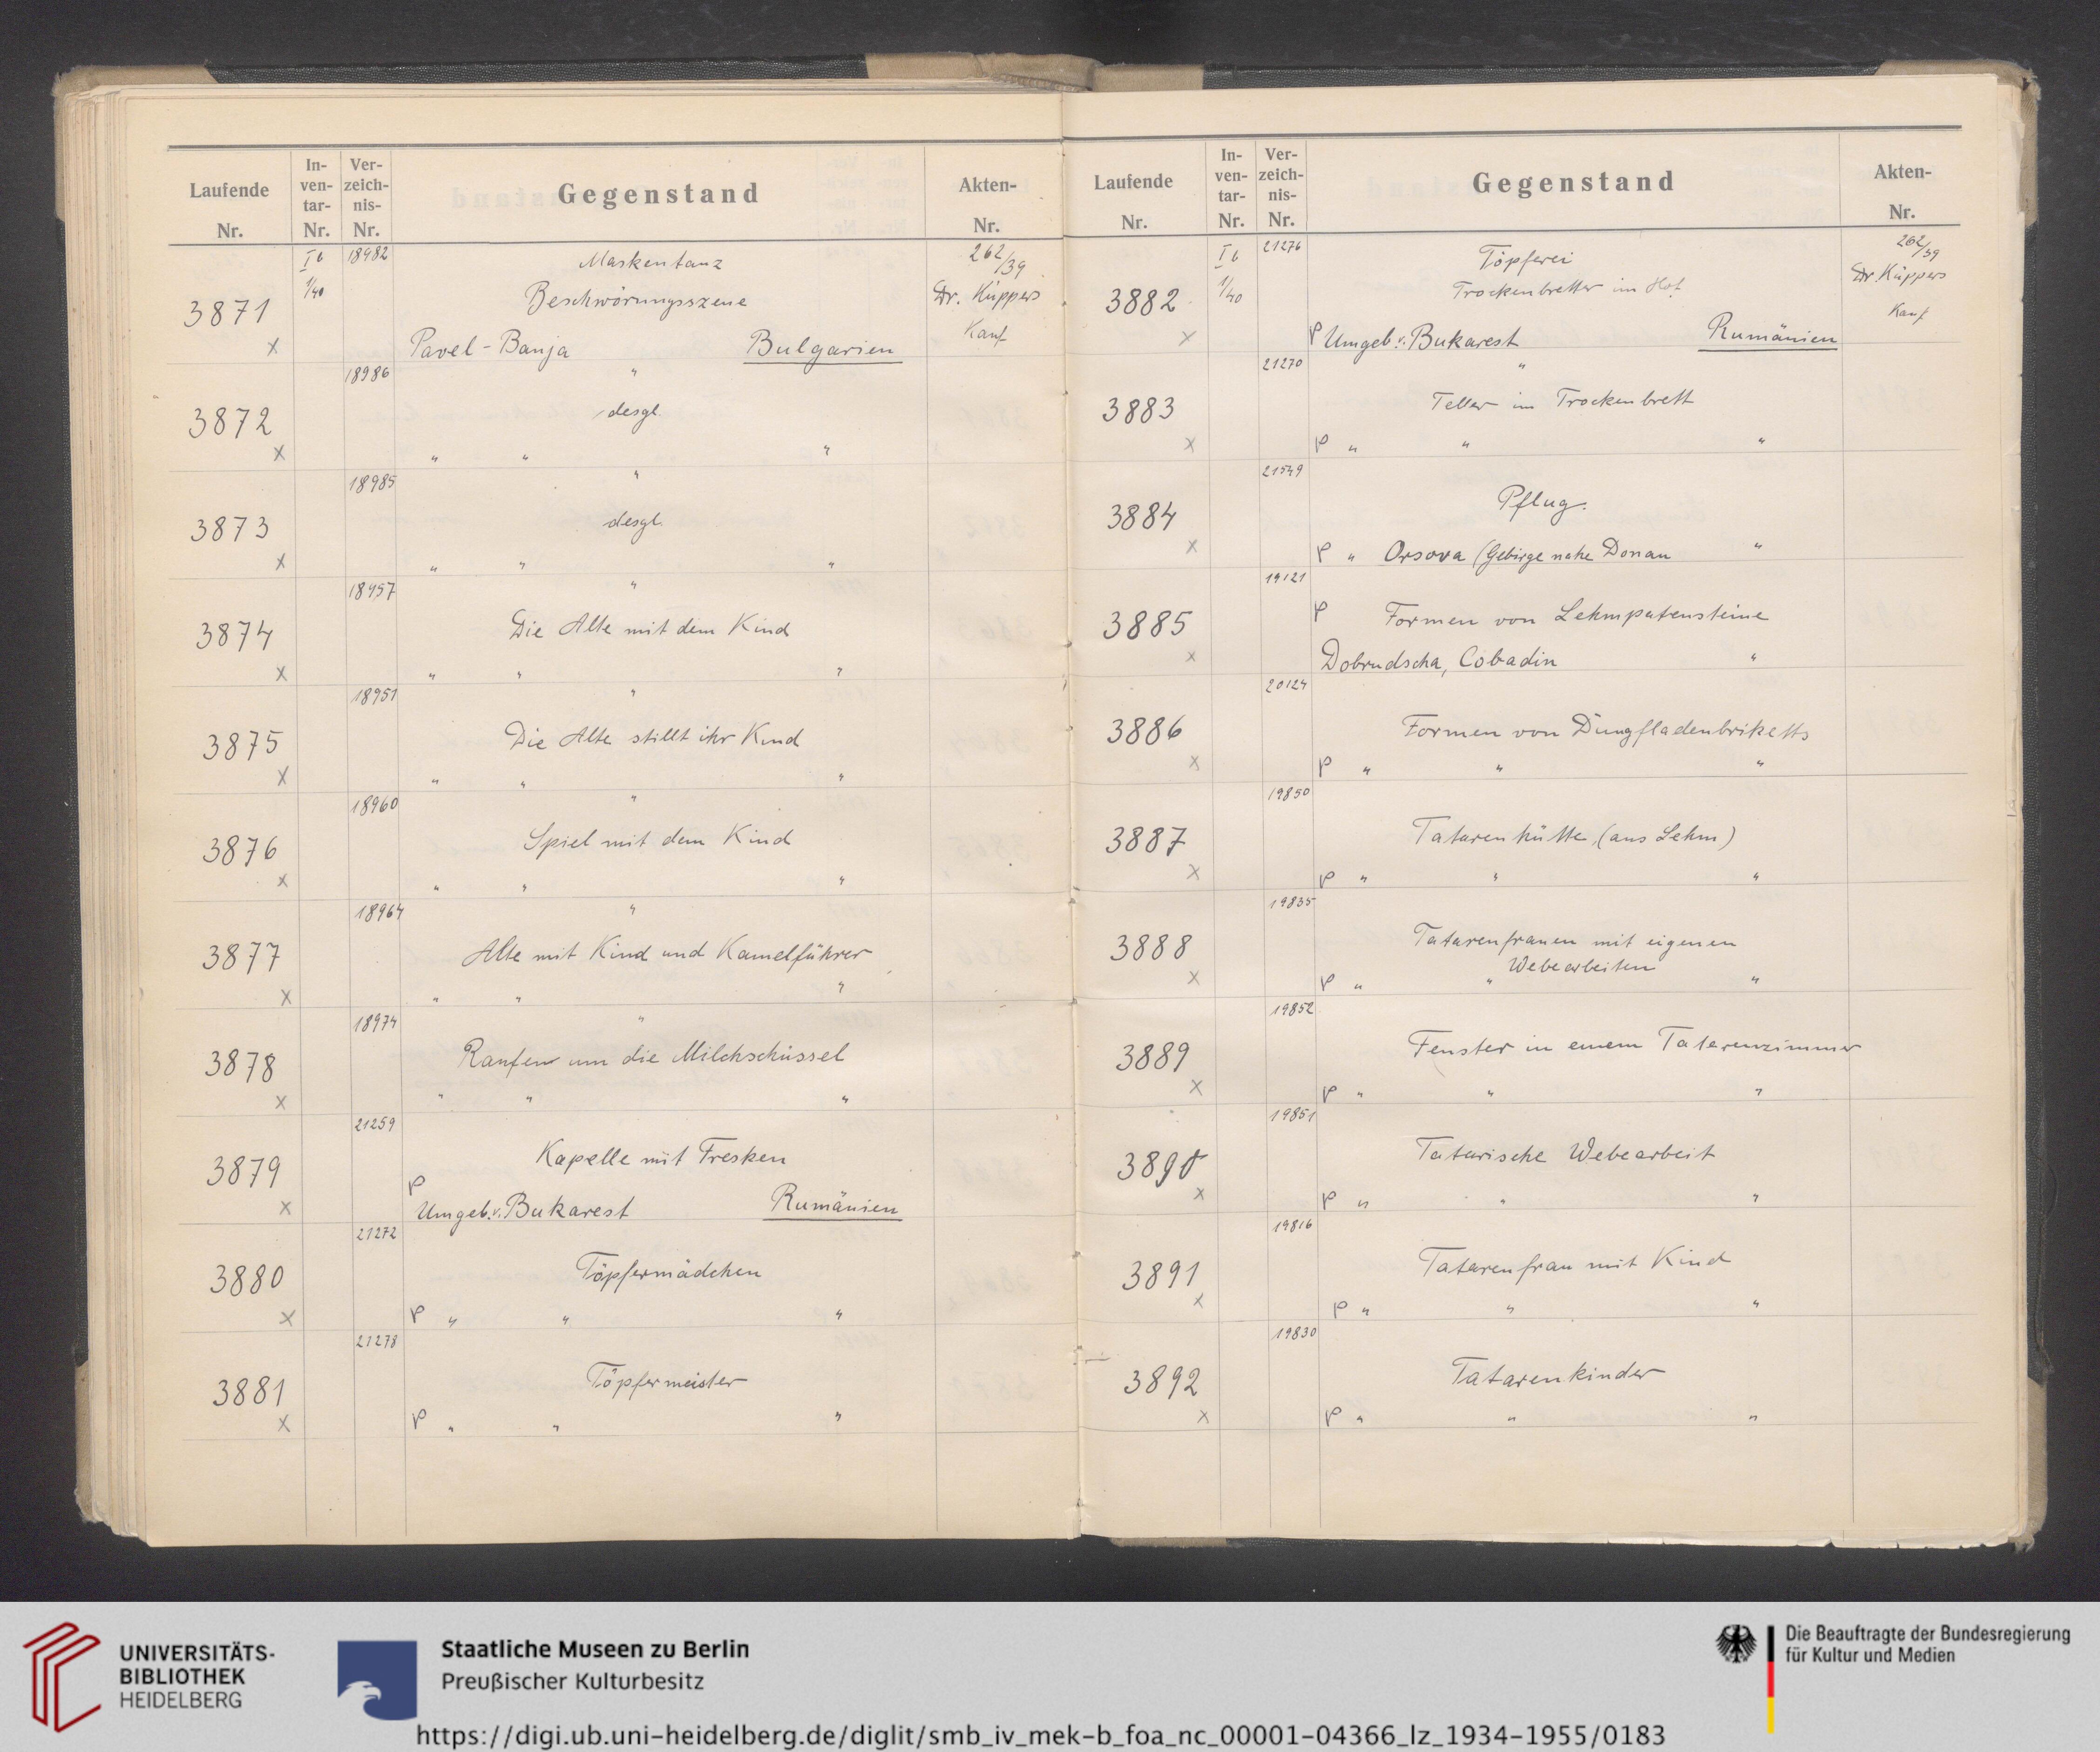 Laufende Nr. In-ven-tar-Nr. Ver-zeich-nis-Nr. Gegenstand Akten-Nr.
I b 18982 Maskentanz 262/39
3871 1/40 Beschwörungsszene Dr. Küppers
x Pavel-Banja Bulgarien Kauf
18986 "
3872 desgl.
x " " "
18985 "
3873 desgl.
x " " "
18957 "
3874 Die Alte mit dem Kind
x " " "
18951 "
3875 Die Alte stillt ihr Kind
x " " "
18960 "
3876 Spiel mit dem Kind
x " " "
18964 "
3877 Alte mit Kind und Kamelführer
x " " "
18974 "
3878 Raufen um die Milchschüssel
x " " "
21259
3879 Kapelle mit Fresken
P
x Umgeb. v. Bukarest Rumänien
21272
3880 Töpfermädchen
x P " " "
21278
3881 Töpfermeister
x P " " "
Laufende Nr. In-ven-tar-Nr. Ver-zeich-nis-Nr. Gegenstand Akten-Nr.
I b 21276 Töpferei 262/39
3882 1/40 Trockenbretter im Hof Dr. Küppers
Kauf
x P Umgeb. v. Bukarest Rumänien
21270 "
3883 Teller im Trockenbrett
x P " " "
21549
3884 Pflug.
x P " Orsova (Gebirge nahe Donau "
19121
3885 P Formen von Lehmpatensteine
x Dobrudscha, Cobadin "
20124
3886 Formen von Dungfladenbriketts
x P " " "
19850
3887 Tatarenhütte (aus Lehm)
x P " " "
19835
3888 Tatarenfrauen mit eigenen
Webearbeiten
x P " " "
19852
3889 Fenster in einem Tatarenzimmer
x P " " "
19851
3890 Tatarische Webearbeit
x P " " "
19816
3891 Tatarenfrau mit Kind
x P " " "
19830
3892 Tatarenkinder
x P " " "
UNIVERSITÄTS-
BIBLIOTHEK
HEIDELBERG
Staatliche Museen zu Berlin
Preußischer Kulturbesitz
Die Beauftragte der Bundesregierung
für Kultur und Medien
https://digi.ub.uni-heidelberg.de/diglit/smb_iv_mek-b_foa_nc_00001-04366_lz_1934-1955/0183